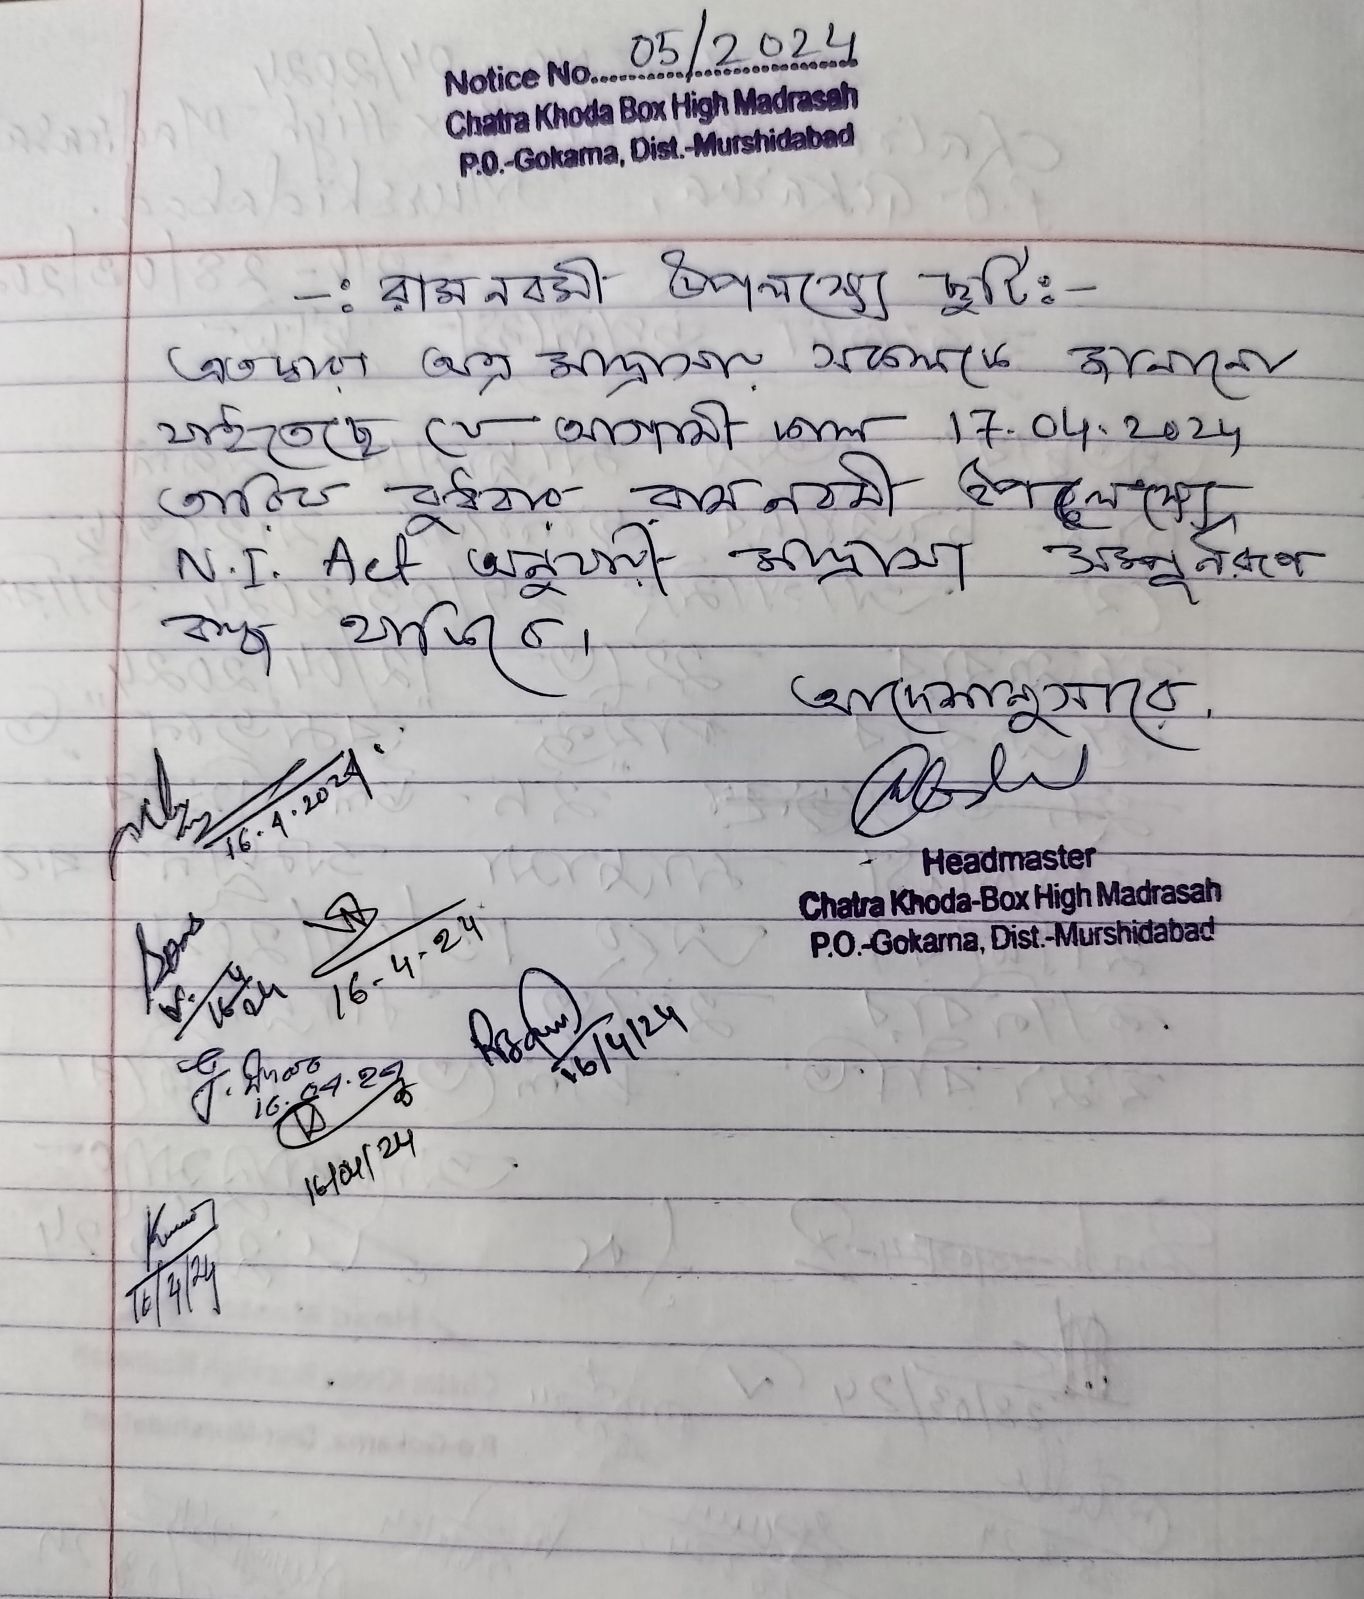 Notice No. 05/2024
Chatra Khoda Box High Madrasah
P.O.-Gokarna, Dist.-Murshidabad
-: রামনবমী উপলক্ষ্যে ছুটি :-
এতদ্বারা অত্র মাদ্রাসার সকলকে জানানো
যাইতেছে যে আগামী কাল 17.04.2024
তারিখ বুধবার রামনবমী উপলক্ষ্যে
N.I. Act অনুযায়ী মাদ্রাসা সম্পূর্নরূপে
বন্ধ থাকিবে।
আদেশানুসারে,
16.4.2024
Headmaster
Chatra Khoda-Box High Madrasah
P.O.-Gokarna, Dist.-Murshidabad
16-4-24
16/4/24
16.04.24
16/04/24
16/4/24